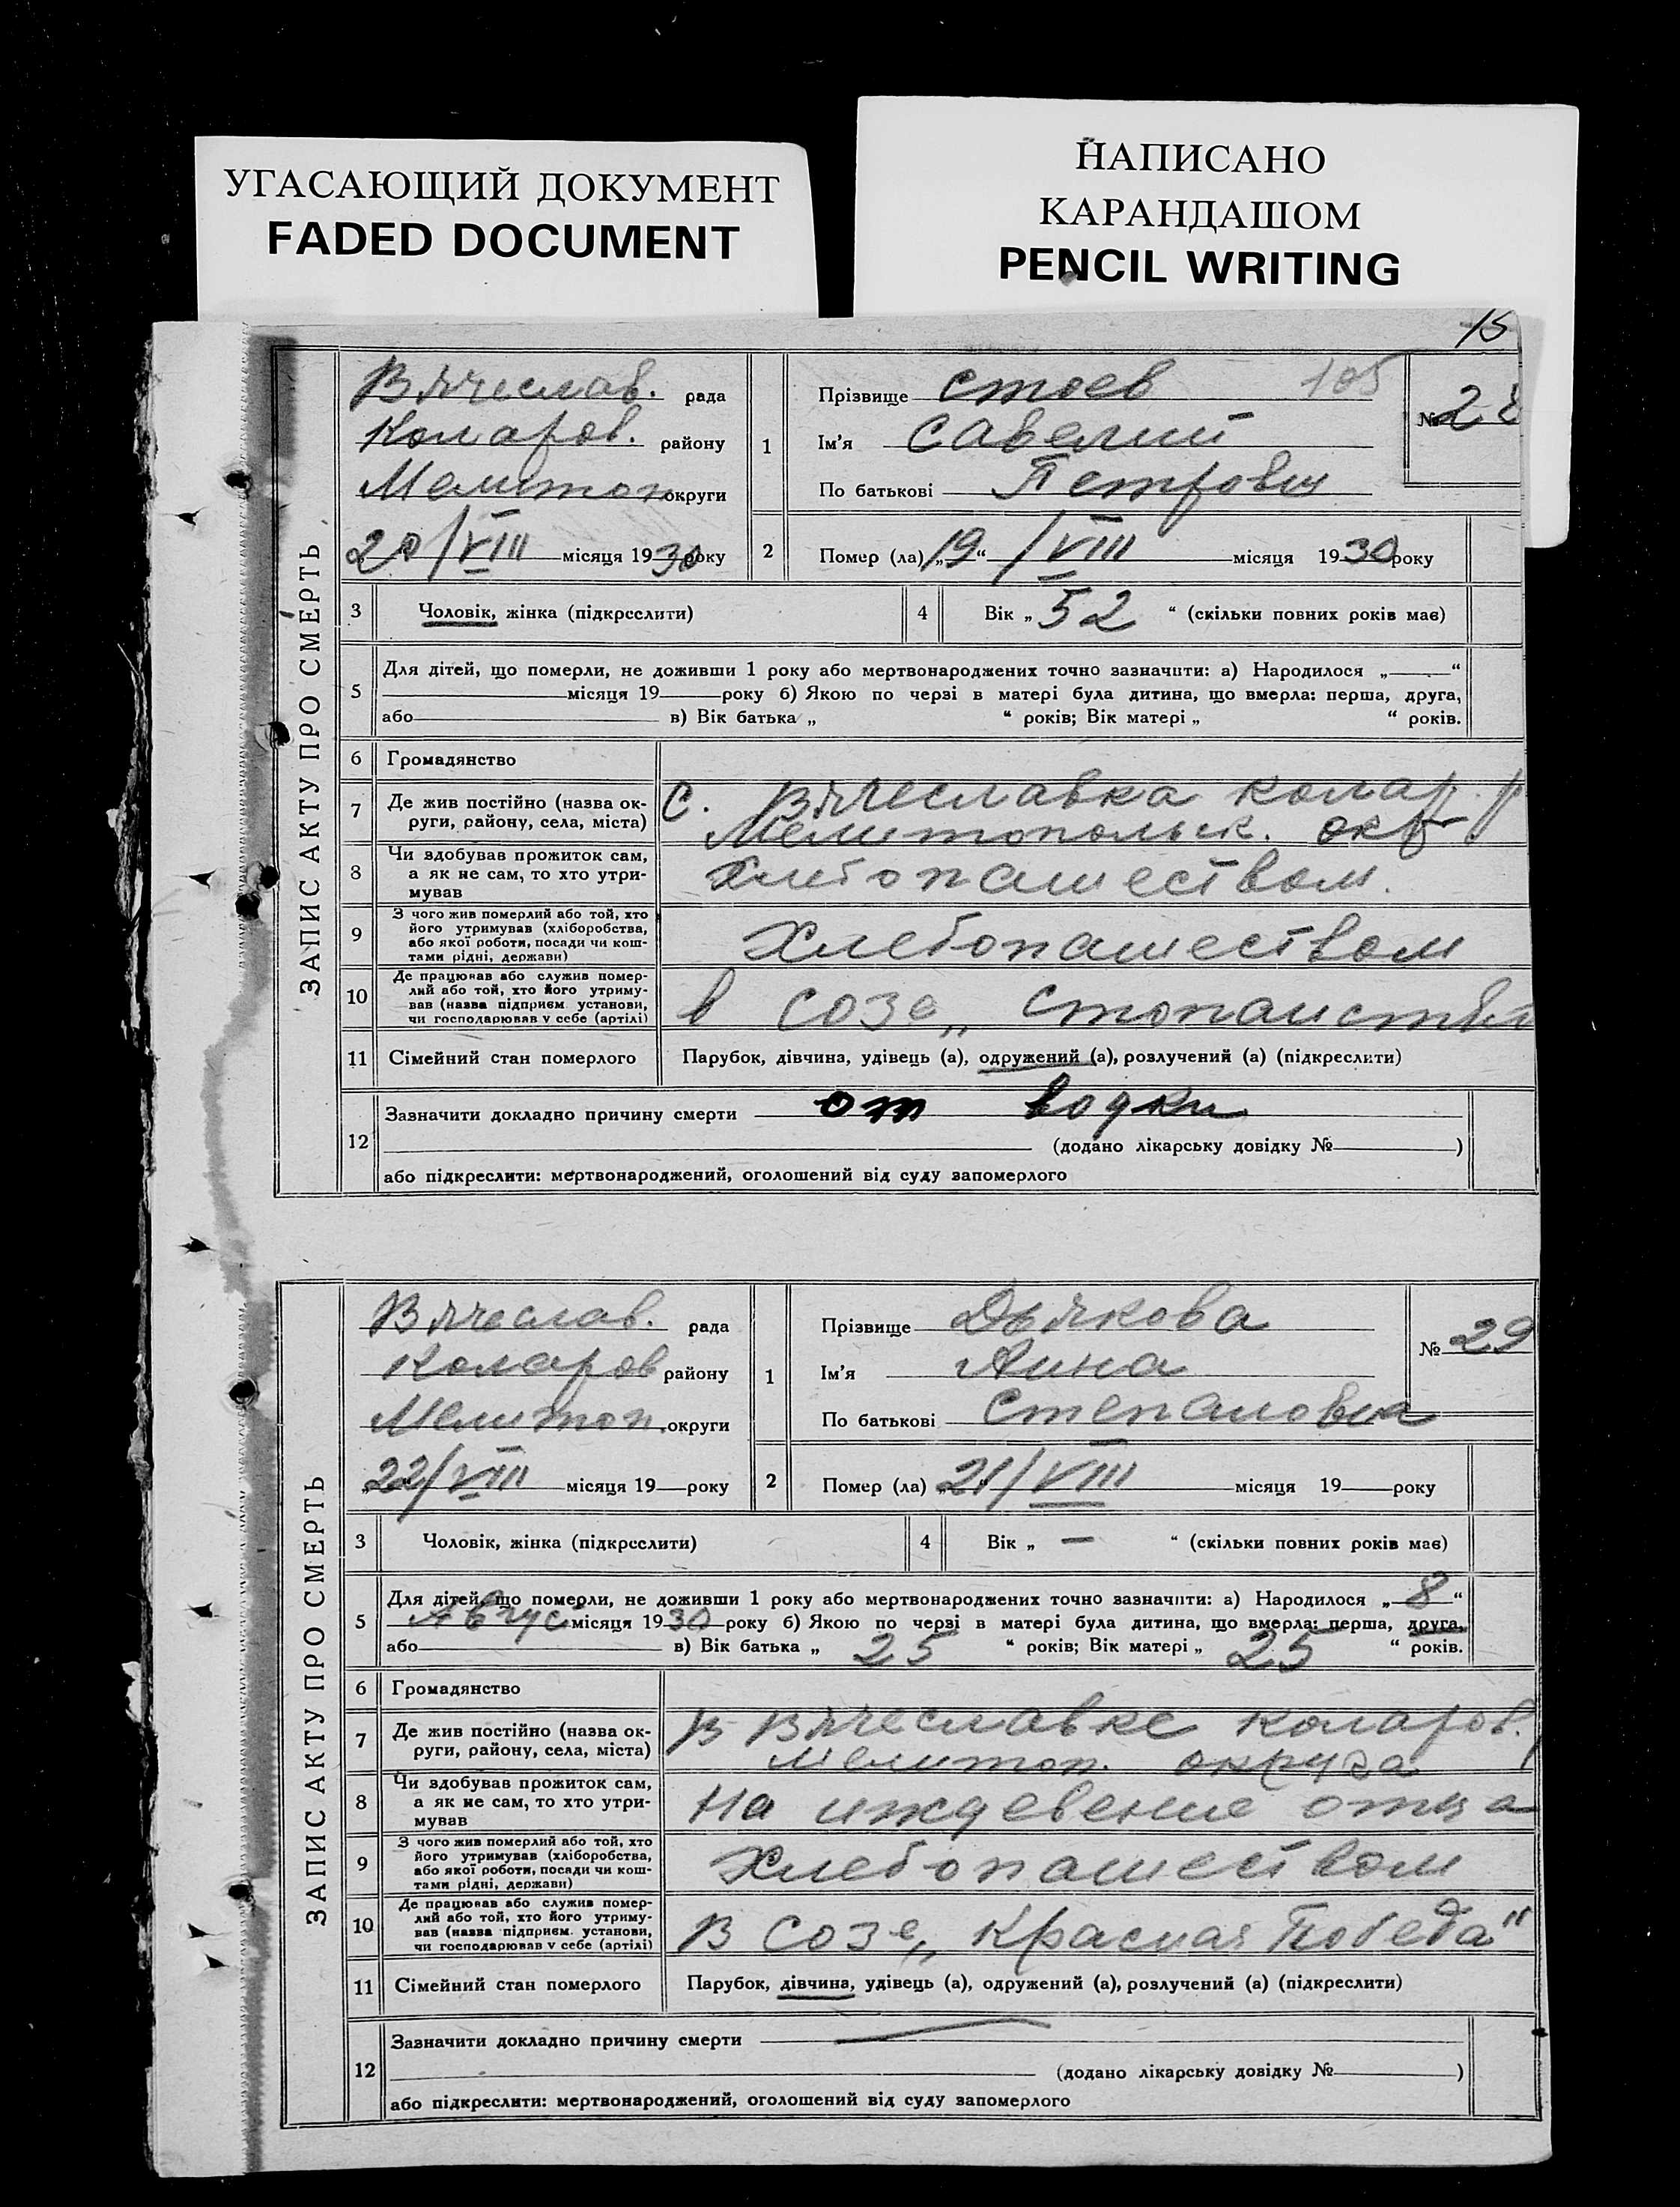 УГАСАЮЩИЙ ДОКУМЕНТ
FADED DOCUMENT
НАПИСАНО
КАРАНДАШОМ
PENCIL WRITING
15
ЗАПИС АКТУ ПРО СМЕРТЬ
Вячеслав. рада
Коларов. району
Мелитоп округи
20/VIII місяця 1930 року
1
Прізвище Стоев 105
Ім'я Савелий
По батькові Петрович
№ 28
2
Помер (ла) „19“ /VIII місяця 1930 року
3 Чоловік, жінка (підкреслити)
4 Вік „52“ (скільки повних років має)
5
Для дітей, що померли, не доживши 1 року або мертвонароджених точно зазначити: а) Народилося „ “
місяця 19 року б) Якою по черзі в матері була дитина, що вмерла: перша, друга,
або в) Вік батька „ “ років; Вік матері „ “ років.
6 Громадянство
7 Де жив постійно (назва округи, району, села, міста)
С. Вячеславка Колар. р
Мелитопольск. окр.
8 Чи здобував прожиток сам,
а як не сам, то хто утри-
мував
Хлебопашеством.
9
З чого жив померлий або той, хто
його утримував (хліборобства,
або якої роботи, посади чи кош-
тами рідні, держави)
Хлебопашеством
10
Де працював або служив помер-
лий або той, хто його утриму-
вав (назва підприєм. установи,
чи господарював у себе (артілі)
в созе „
11 Сімейний стан померлого
Парубок, дівчина, удівець (а), одружений (а), розлучений (а) (підкреслити)
12
Зазначити докладно причину смерти от водки
(додано лікарську довідку № )
або підкреслити: мертвонароджений, оголошений від суду запомерлого
ЗАПИС АКТУ ПРО СМЕРТЬ
Вячеслав. рада
Коларов району
Мелитоп. округи
„22/VIII місяця 19 року
1
Прізвище Дьякова
Ім'я Анна
По батькові Степановна
№ 29
2
Помер (ла) „21“/VIII місяця 19 року
3 Чоловік, жінка (підкреслити)
4 Вік „ — “ (скільки повних років має)
5
Для дітей, що померли, не доживши 1 року або мертвонароджених точно зазначити: а) Народилося „8“
Август місяця 1930 року б) Якою по черзі в матері була дитина, що вмерла: перша, друга,
або в) Вік батька „25“ років; Вік матері „25“ років.
6 Громадянство
7 Де жив постійно (назва округи, району, села, міста)
В Вячеславке Коларов.
Мелитоп. округа
8 Чи здобував прожиток сам,
а як не сам, то хто утри-
мував
На иждевение отца
9
З чого жив померлий або той, хто
його утримував (хліборобства,
або якої роботи, посади чи кош-
тами рідні, держави)
Хлебопашеством
10
Де працював або служив помер-
лий або той, хто його утриму-
вав (назва підприєм. установи,
чи господарював у себе (артілі)
В созе „Красная Победа"
11 Сімейний стан померлого
Парубок, дівчина, удівець (а), одружений (а), розлучений (а) (підкреслити)
12
Зазначити докладно причину смерти —
(додано лікарську довідку № )
або підкреслити: мертвонароджений, оголошений від суду запомерлого